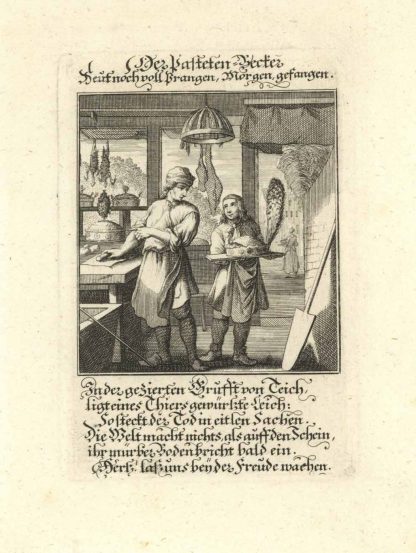 Der Pasteten-Becker
Heut noch voll Prangen, Morgen, gefangen.
In der gezierten Grufft von Teich,
ligt eines Thiers gewürtzte Leich:
So steckt der Tod in eitlen Sachen.
Die Welt macht nichts, als auff den Schein,
ihr mürber Boden bricht bald ein.
Hertz, laß uns bey der Freude wachen.